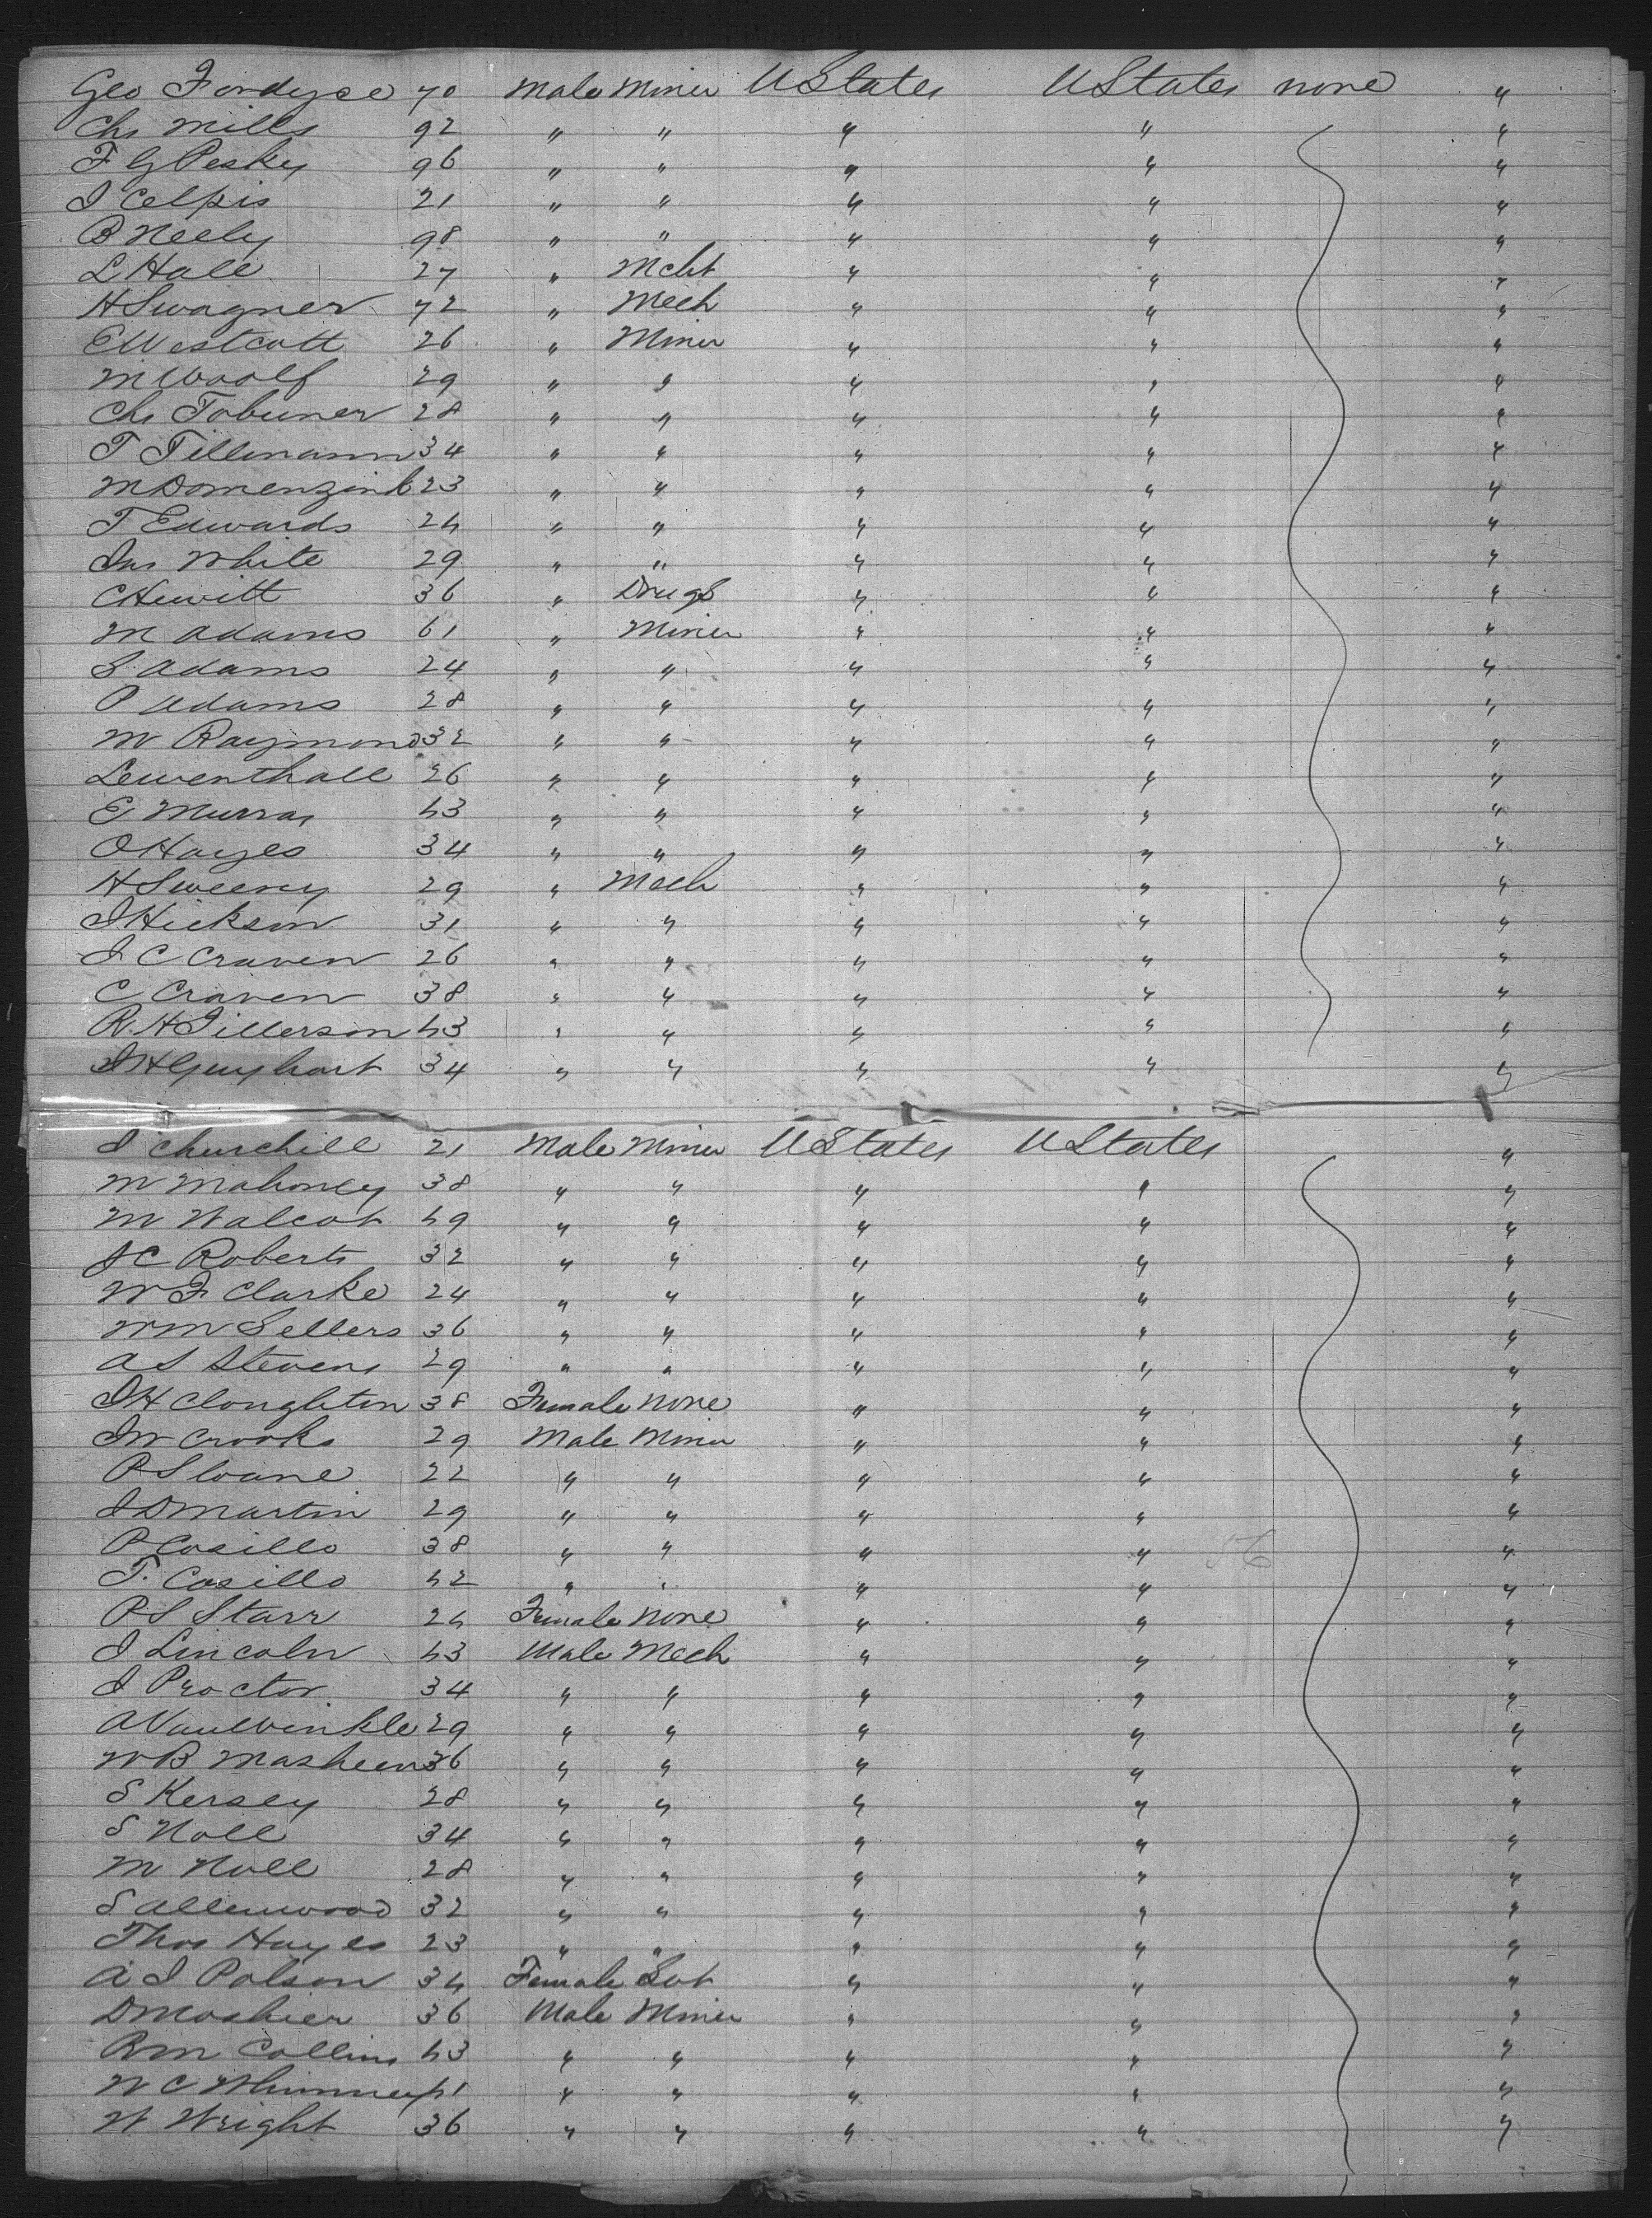 Geo Fordyce 40 Male Miner UStates UStates none "
Chs Mills 42 " " " " "
F G Pesky 46 " " " " "
J Celpis 21 " " " " "
B Neely 48 " " " " "
L Hall 27 " Mcht " " "
H Swagner 42 " Mech " " "
E Westcott 26 " Miner " " "
M Woolf 29 " " " " "
Chs Tobuner 28 " " " " "
T Tillmann 34 " " " " "
M Domenzink 23 " " " " "
T Edwards 24 " " " " "
Jas White 29 " " " " "
C Hewitt 36 " Drugs " " "
M Adams 61 " Miner " " "
S. Adams 24 " " " " "
P Adams 28 " " " " "
M Raymond 32 " " " " "
Lewenthall 26 " " " " "
E Murray 43 " " " " "
O Hayes 34 " " " " "
H Sweeny 29 " Mech " " "
J Hickson 31 " " " " "
J C Craven 26 " " " " "
C Craven 38 " " " " "
R. H Tillerson 43 " " " " "
J H Guyhart 34 " " " " "
J Churchill 21 Male Miner UStates UStates "
M Mahoney 38 " " " " "
M Walcot 49 " " " " "
J C Roberts 32 " " " " "
W F Clarke 24 " " " " "
Wm Sellers 36 " " " " "
A S Stevens 29 " " " " "
J H Clonghton 38 Female none " " "
J W Crooks 29 Male Miner " " "
P Sloane 22 " " " " "
J D Martin 29 " " " " "
P Casillo 38 " " " " "
T. Casillo 42 " " " " "
P S Starr 24 Female none " " "
J Lincoln 43 Male Mech " " "
J Proctor 34 " " " " "
A VanWinkle 29 " " " " "
W B Masheen 36 " " " " "
S Kersey 28 " " " " "
S Noll 34 " " " " "
M Noll 28 " " " " "
S Allenwood 32 " " " " "
Thos Hayes 23 " " " " "
A J Polson 34 Female " " "
D Moshier 36 Male Miner " " "
R M Collins 43 " " " " "
W C " " " " "
W Wright 36 " " " " "